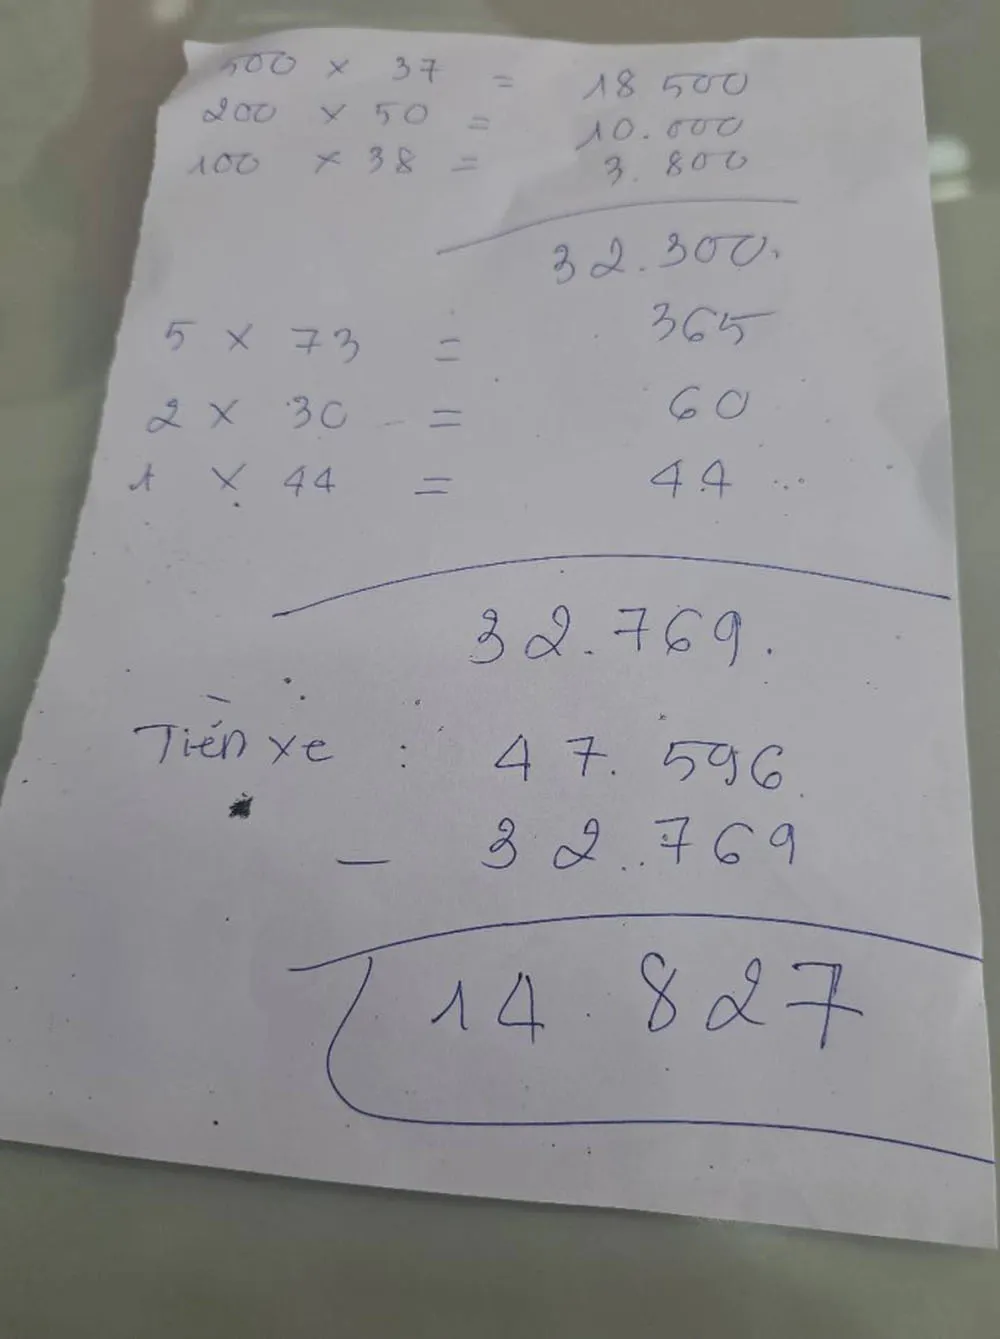 500 × 37 = 18 500
200 × 50 = 10.000
100 × 38 = 3.800
32.300.
5 × 73 = 365
2 × 30 = 60
1 × 44 = 44 ...
32.769.
Tiền xe : 47.596.
- 32.769
14.827